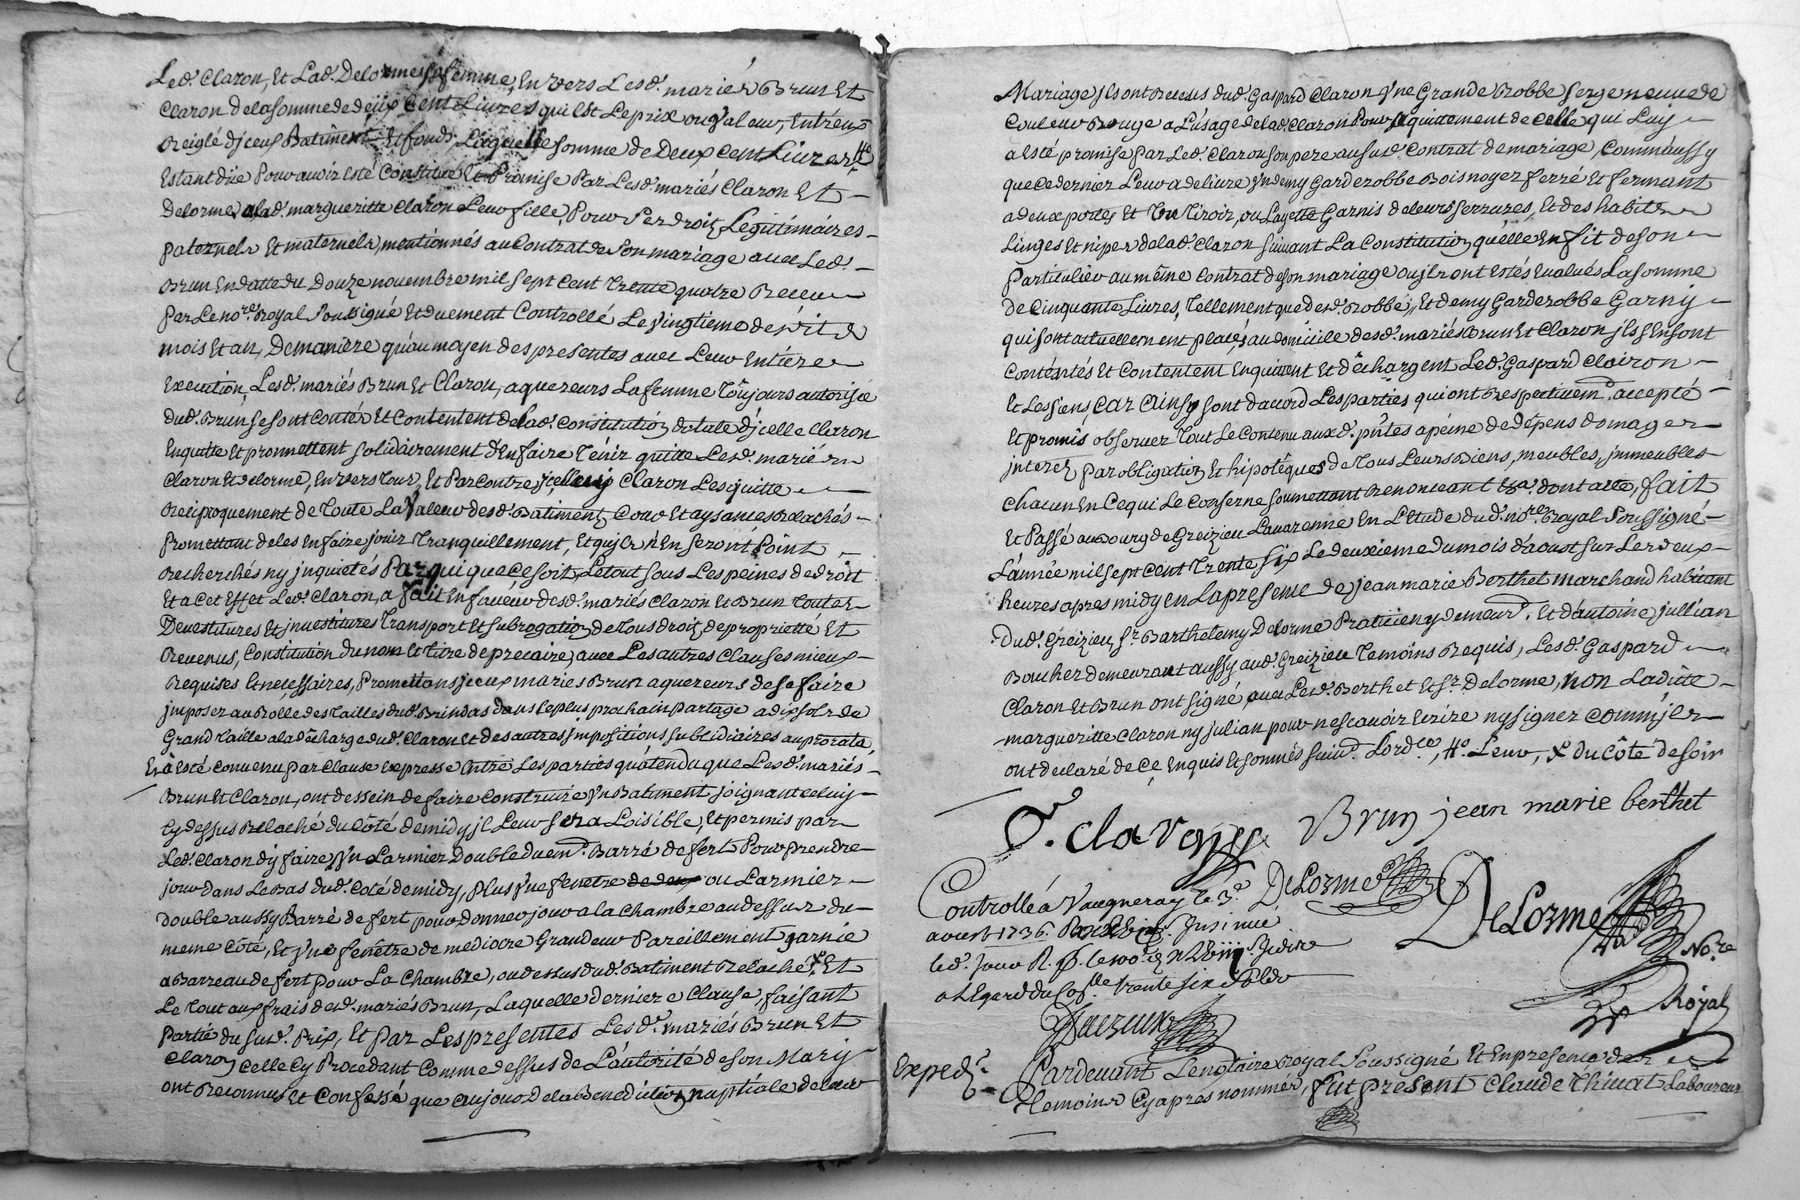 Led.t Claron, Et Lad.t Delorme sa femme, Envers Lesd.t mariés Brun Et
Claron de la somme de deux cent Livres qui est Le prix ou Valeur, Entr'eux
Reiglé d'jceux Batiment Et fond, Laquelle somme de Deux cent Livres
Estant düe Pour avoir esté Constituée Et Promise Par Lesd.t mariés Claron Et
Delorme, a lad.t margueritte Claron Leur fille, Pour Ses droitz Legitimaires
paternels Et maternels, mentionnés au Contrat de Son mariage avec Led.t
Brun En datte du Douze novembre mil sept Cent Trente quatre Receu
par Le no.re Royal Soussigné Et duement Controllé Le Vingtieme desdits
mois Et an, De maniere qu'au moyen des presentes avec Leur Entiere
Execution, Lesd.t mariés Brun Et Claron, aquereurs La femme Toujours autorisée
dud.t Brun se sont Contentés Et Contentent de lad.t Constitution dotale d'jcelle Claron
Enquitte Et promettent solidairement d'En faire Tenir quitte Lesd.t mariés
Claron Et delorme, Envers Tous, Et Par Contre jcelluy Claron Les quitte
Reciproquement de Toute La Valeur desd.t Batiment Cour Et aysances Relachés
Promettant de les En faire jouir Tranquillement, Et qu'jls n'En Seront Point
Recherchés ny jnquietés Par qui que Ce soit, Le tout sous Les peines de droit
Et a Cet Effet Led.t Claron, a fait En faveur desd.t mariés Claron Et Brun Toutes
Devestitures Et jnvestitures Transport Et subrogation de Tous droitz de proprietté Et
Revenus, Constitution du nom Et titre de precaire, avec Les autres Clauses mieux
Requises Et necessaires, Promettans jceux mariés Brun aquereurs de se faire
jmposer au Rolle des Tailles dud.t Brindas dans le plus prochain partage a dix sols de
Grand Taille a la decharge dud.t Claron Et des autres jmpositions subsidiaires au prorata,
Et a Esté Convenu par Clause Expresse Entre Les parties qu'atendu que Lesd.t mariés
Brun Et Claron, ont dessein de faire Construire Un Batiment joignant Celuy
Cy dessus Relaché du Côté de midy, jl Leur sera Loisible, Et permis par
Led.t Claron d'y faire Un Larmier Double duem.t Barré de fert Pour prendre
jour dans Le Bas dud.t Coté de midy, plus Une fenetre ou Larmier
double aussy Barré de fert pour donner jour a la Chambre au dessus du
meme Côté, Et Une fenêtre de mediocre Grandeur Pareillement garnie
a Barreau de fert pour La Chambre, au dessus dud.t Batiment Relaché x Et
Le Tout aux frais desd.t mariés Brun, Laquelle derniere Clause, faisant
Partie du susd.t Prix, Et par Les presentes Lesd.t mariés Brun Et
Claron, Celle Cy Procedant Comme dessus de L'autorité de son Mary
ont Reconnus Et Confessé que au jour de la Benediction nuptiale de leur
Mariage jls ont Receus dud.t Gaspard Claron Une Grande Robbe serge neuve de
Couleur Rouge a L'usage de lad.t Claron Pour aquittement de Celle qui Luy
a esté promise Par Led.t Claron son pere au susd.t Contrat de mariage, Comm'aussy
que Ce dernier Leur a delivré Un demy Garderobbe Bois noyer ferré Et fermant
a deux portes Et Un Tiroir, ou Layette Garnis de leurs serrures, Et des habits
Linges Et nipes de lad.t Claron suivant La Constitution qu'elle En fit de son
Particulier au même Contrat de son mariage ou jls ont Estés Evalués La somme
de Cinquante Livres, Tellement que desd.t Robbe, Et demy Garderobbe Garny
qui sont actuellement placés au domicille desd.t mariés Brun Et Claron jls s'En sont
Contentés Et Contentent Enquittent Et d'échargent Led.t Gaspard Clairon
Et Les siens Car ainsy sont d'acord Les parties qui ont Respectivem.t accepté
Et promis observer Tout Le Contenu aux d.t pntes a peine de dépens domages
jnterez par obligation Et hipotêques de Tous Leurs Biens, meubles, jmmeubles
Chacun En Ce qui Le Conserne soumettant Renonceant &a dont acte, fait
Et Passé au Bourg de Greizieu Lavarenne En L'Etude dud.t no.re Royal Soussigné
L'année mil sept Cent Trente six Le deuxieme du mois d'aoust sur Les deux
heures apres midy En La presense de jean marie Berthet marchand habitant
dud.t Greizieu, S.r Barthelemy Delorme Praticien y demeur.t Et d'antoine jullian
Boucher demeurant aussy aud.t Greizieu Temoins Requis, Lesd.t Gaspard
Claron Et Brun ont signé avec Lesd.t Berthet Et S.r Delorme, non Laditte
margueritte Claron ny julian pour ne scavoir Ecrire ny signer Comm'jls
ont declaré de Ce Enquis Et sommés suiv.t Lord.ce, Leur, x du Côté de soir
G. claron Brun jean marie berthet
DeLorme DeLorme
No.re
Royal
Controllé a Vaugneray le 3.e
aoust 1736. jnsinué
led. jour
a L'Egard du trente six sols
Exped.é
Pardevant Le notaire Royal Soussigné Et En presence des
Temoins Cy apres nommés, fut present Claude Thivat Laboureur